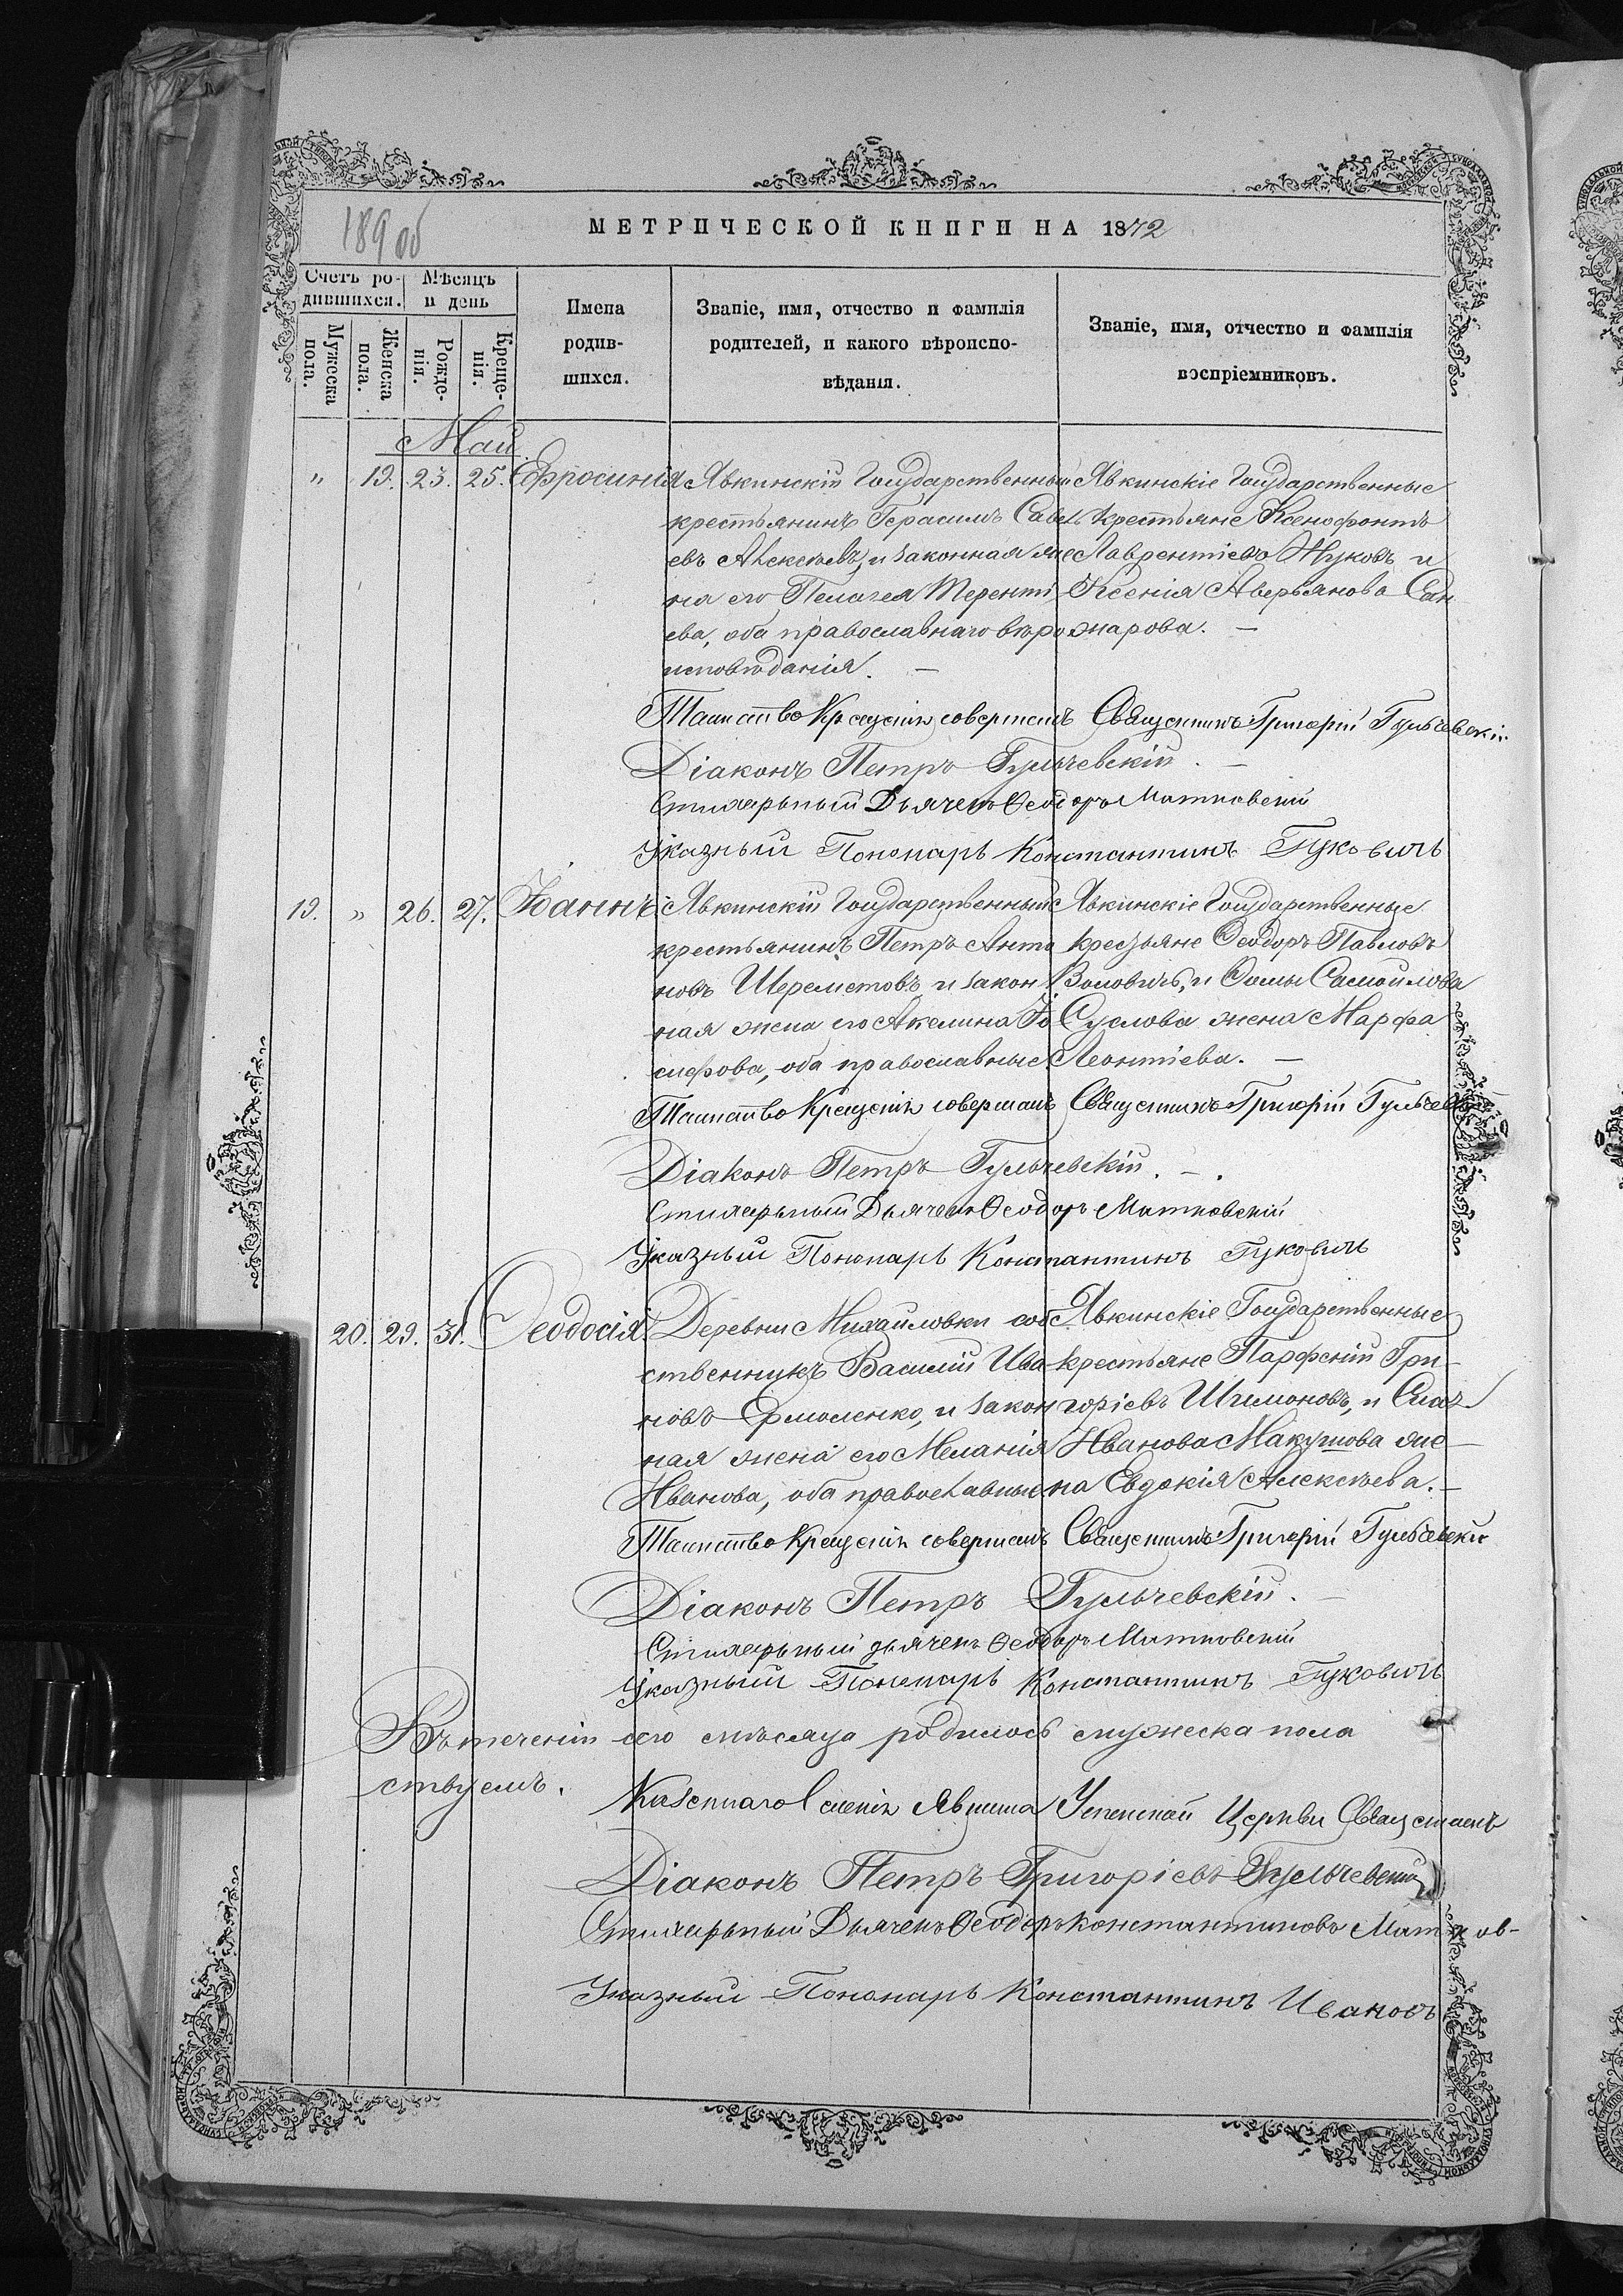 189 об
МЕТРИЧЕСКОЙ КНИГИ НА 1872
Счетъ ро-
дившихся.
Мѣсяцъ
и день
Мужеска
пола.
Женска
пола.
Рожде-
нія.
Креще-
нія.
Имена
родив-
шихся.
Званіе, имя, отчество и фамилія
родителей, и какого вѣроиспо-
вѣданія.
Званіе, имя, отчество и фамилія
воспріемниковъ.
Май.
" 19. 23. 25. Ефросинія
Явкинскій Государственный
крестьянинъ Герасимъ Савел
евъ Алексѣевъ, и законная же
на его Пелагея Теренті
ева, оба православнаго вѣро
исповѣданія. —
Явкинскіе Государственные
крестьяне Ксенофонтъ
Лаврентіевъ Жуковъ и
Ксенія Аверьянова Сан
жарова. —
Таинство Крещенія совершалъ Священникъ Григорій Гульчевскій
Діаконъ Петръ Гульчевскій. —
Стихарьный Дьячекъ Ѳеодоръ Матковскій
Указный Пономарь Константинъ Гуковичъ
19. " 26. 27. Іоаннъ
Явкинскій Государственный
крестьянинъ Петръ Анто
новъ Шереметовъ и закон
ная жена его Акелина Іо
сифова, оба православные
Явкинскіе Государственные
крестьяне Ѳеодоръ Павловъ
Воловичъ, и Ѳомы Самойлова
Суслова жена Марфа
Леонтіева. —
Таинство Крещенія совершалъ Священникъ Григорій Гульчев
Діаконъ Петръ Гульчевскій. — .
Стихарьный Дьячекъ Ѳеодоръ Матковскій
Указный Пономарь Константинъ Гуковичъ
20. 29. 31. Ѳеодосія
Деревни Михайловки соб
ственникъ Василій Ива
новъ Ермоленко, и закон
ная жена его Меланія
Иванова, оба православные
Явкинскіе Государственные
крестьяне Парфеній Гри-
горіевъ Шимоновъ, и
Иванова Макушова же-
на Евдокія Алексѣева. —
Таинство Крещенія совершалъ Священникъ Григорій Гульчевскій
Діаконъ Петръ Гульчевскій. —
Стихарьный дьячекъ Ѳеодоръ Матковскій
Указный Пономарь Константинъ Гуковичъ
Въ теченіи сего мѣсяца родилось мужеска пола
ствуемъ.
Казеннаго Селенія Явкина Успенской Церкви Священникъ
Діаконъ Петръ Григоріевъ Гульчевскій
Стихарьный Дьячекъ Ѳеодоръ Константиновъ Матков-
Указный Пономарь Константинъ Ивановъ